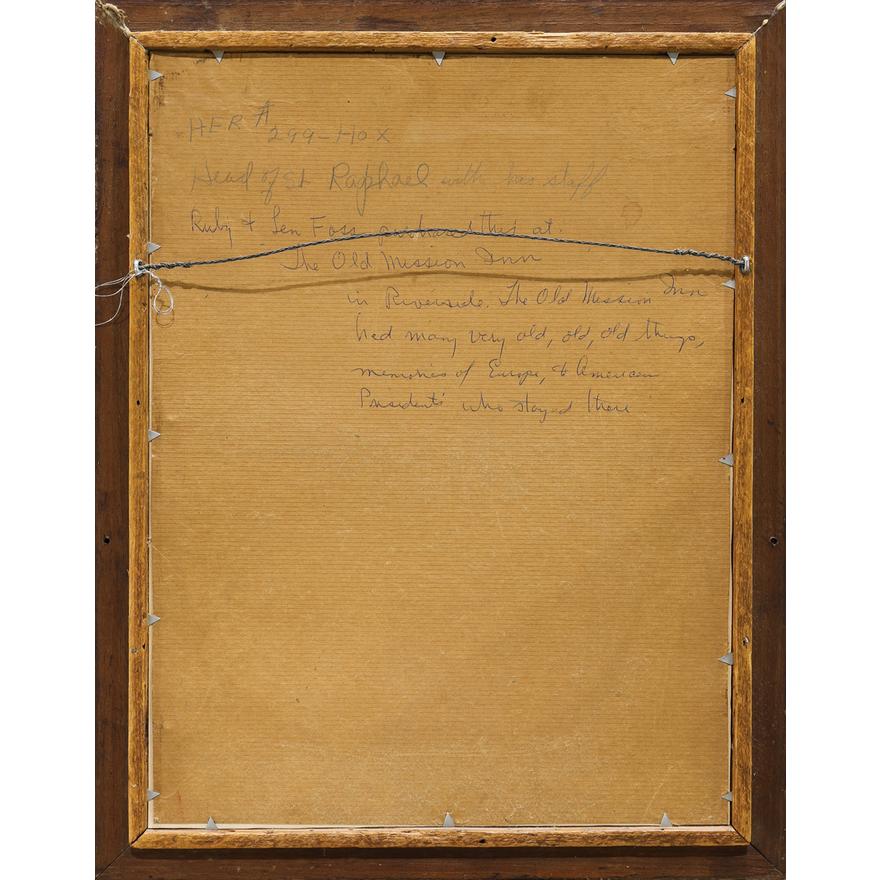 HER # 299-HOX
Head of St Raphael with his staff
Ruby & Len Foss purchased this at
The Old Mission Inn
in Riverside. The Old Mission Inn
had many very old, old, old things,
memories of Europe, & American
Presidents who stayed there